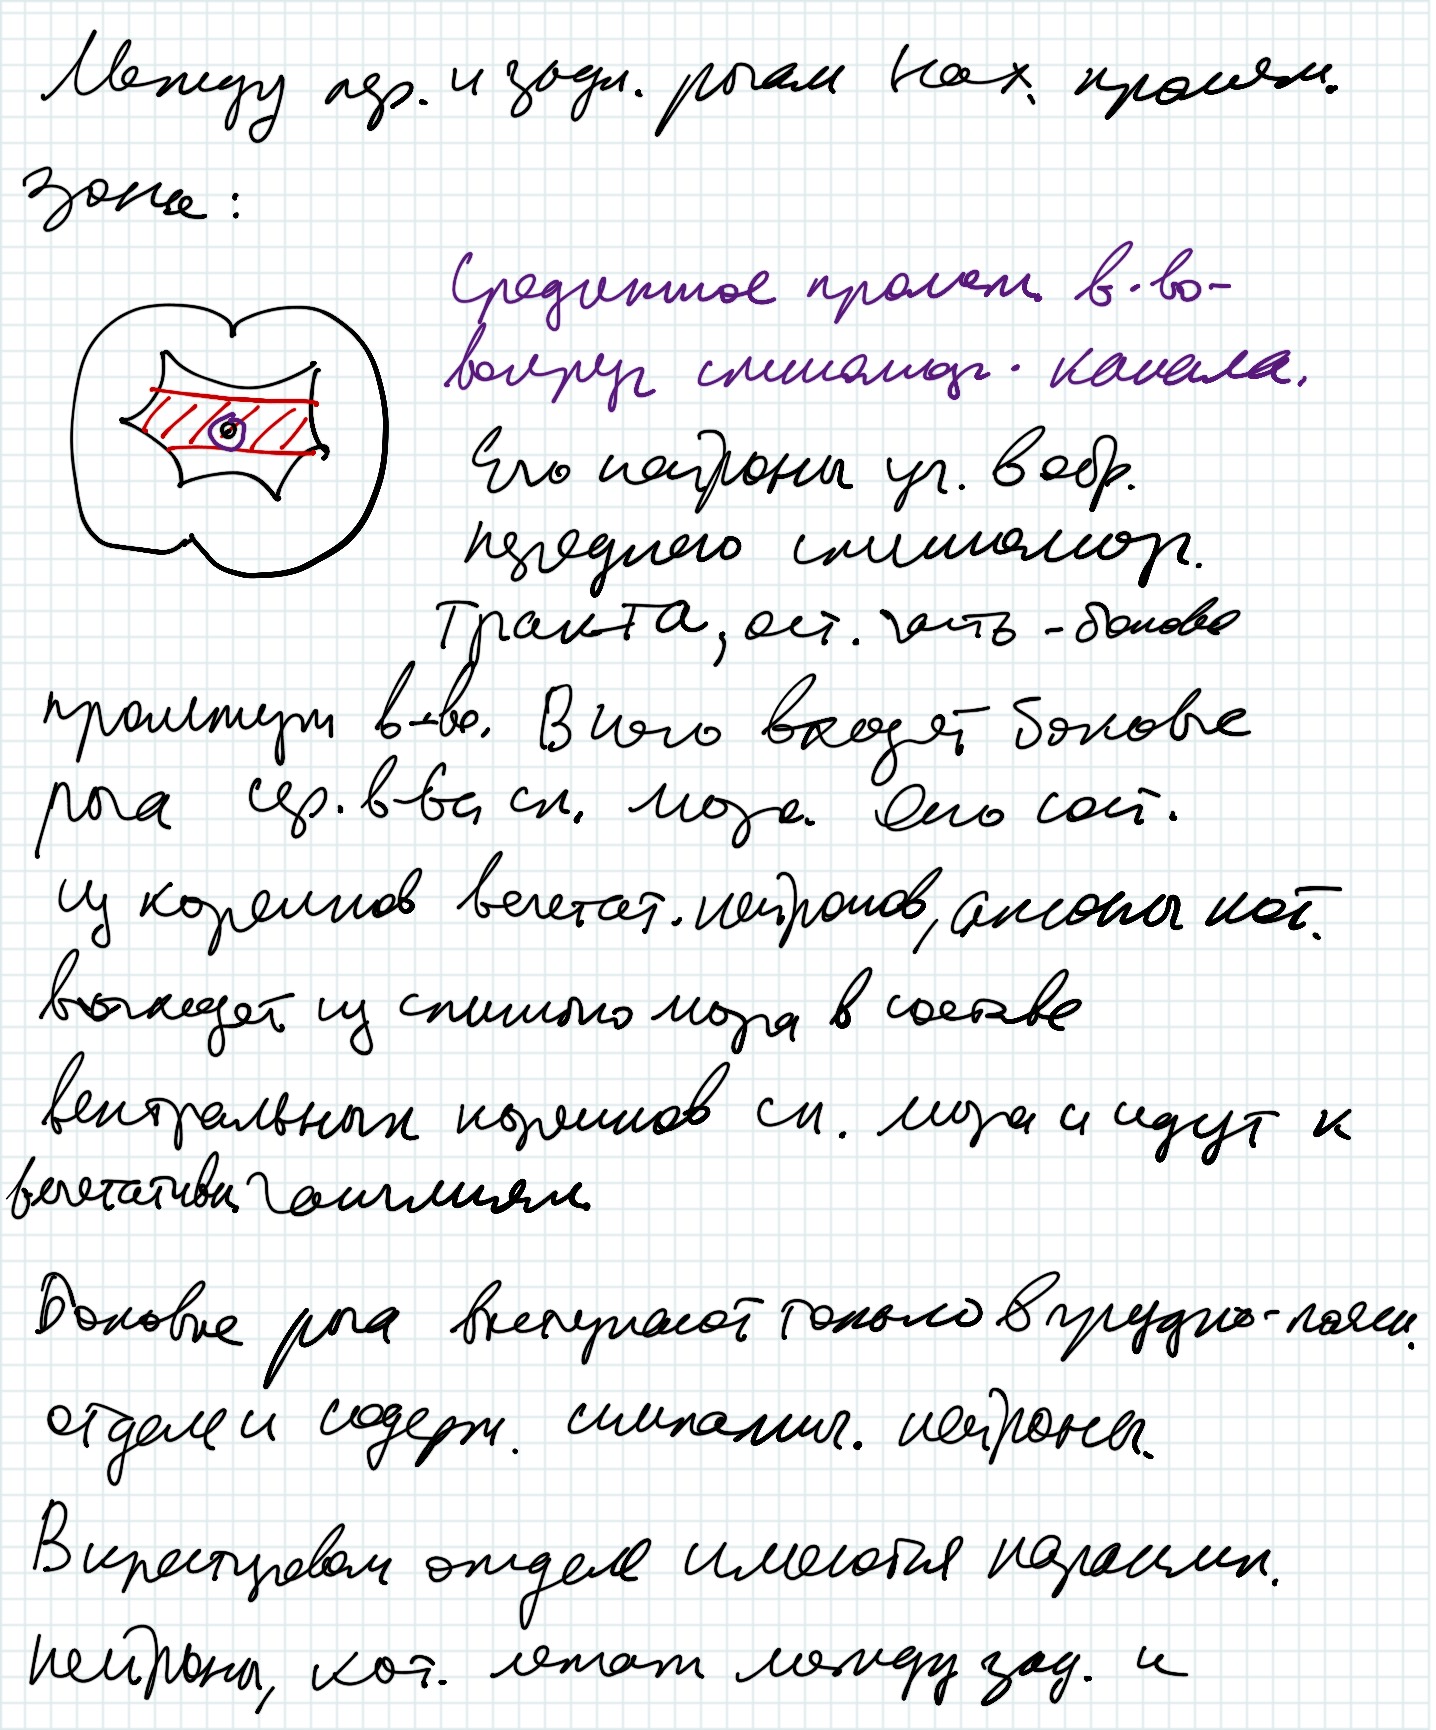 Между пер. и задн. рогам нах. пром.
зона:
Срединное пром. в-во-
вокруг спинномозг. канала.
Его нейроны уч. в обр.
переднего спинномозг.
тракта, ост. часть - боковое
промежут в-во. В него входят боковые
рога сер. в-ва сп. мозга. Оно сост.
из корешков вегетат. нейронов, аксоны кот.
выходят из спинного мозга в составе
вентральных корешков сп. мозга и идут к
вегетативн. ганглиям.
Боковые рога выступают только в грудно-поясн.
отделе и содерж. симпатич. нейроны.
В крестцовом отделе имеются парасимп.
нейроны, кот. лежат между зад. и